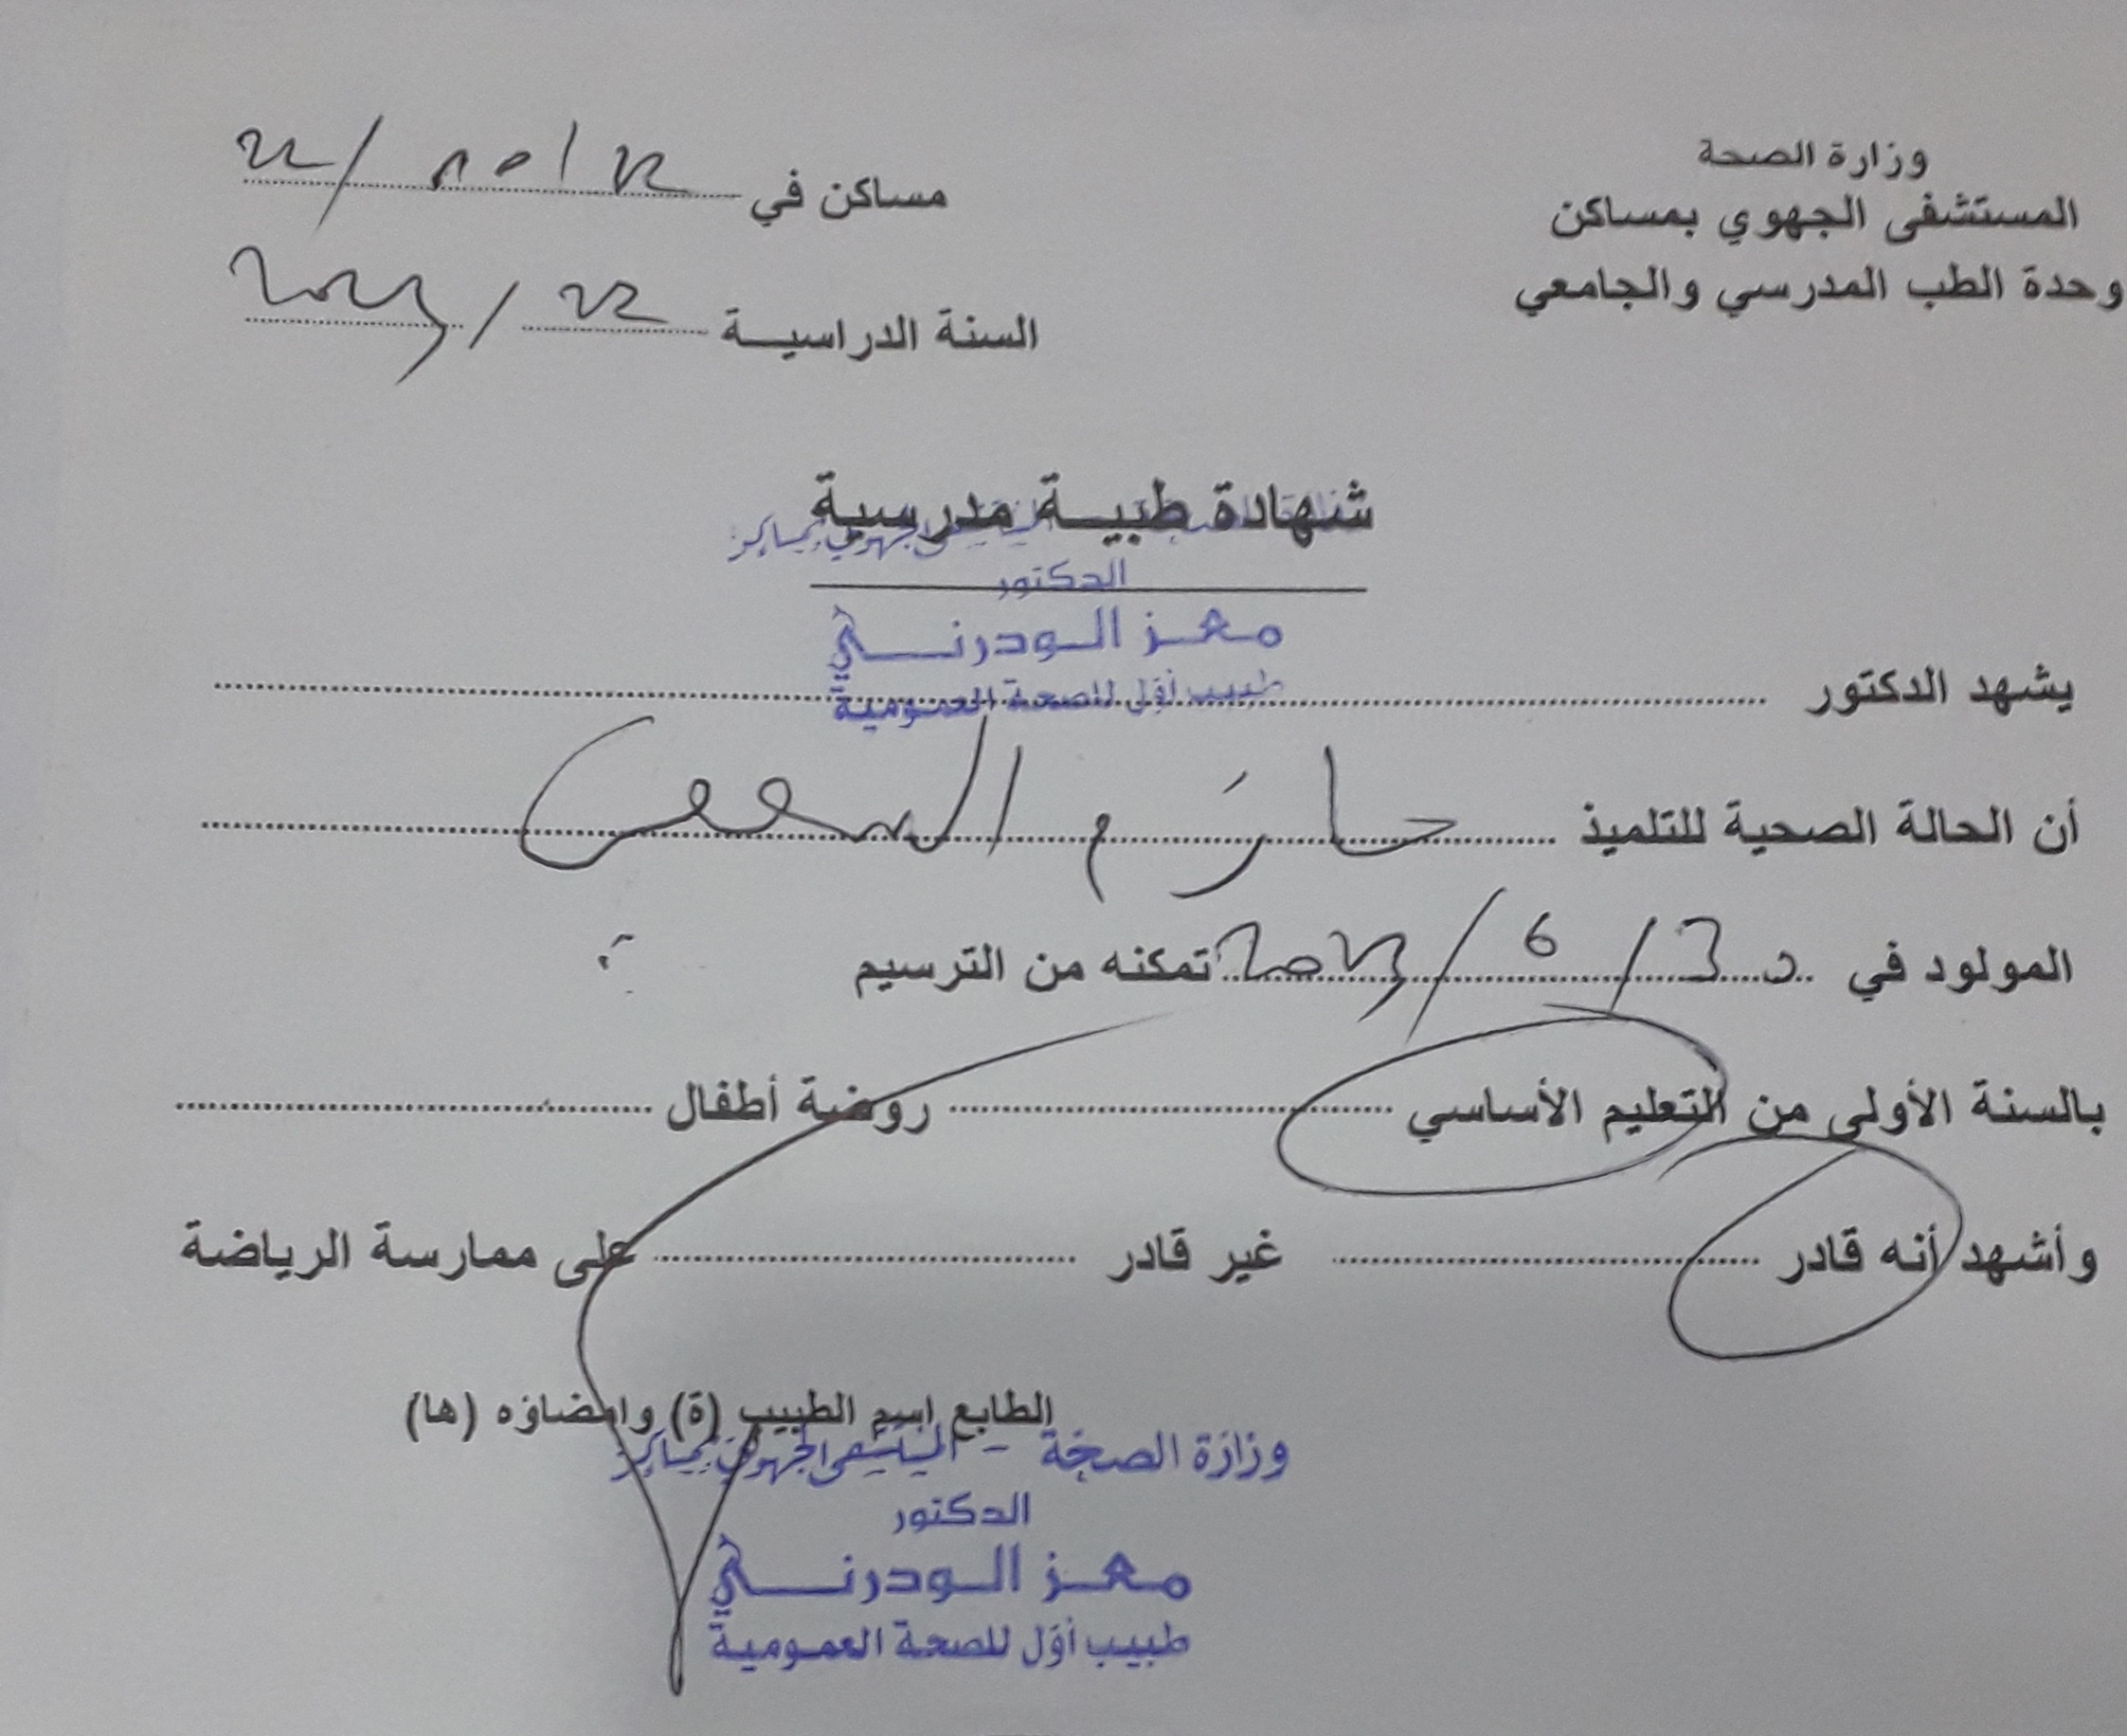 وزارة الصحة
المستشفى الجهوي بمساكن
وحدة الطب المدرسي والجامعي
مساكن في
السنة الدراسية 22 /
شهادة طبية مدرسية
المستشفى الجهوي بمساكن
الدكتور
معز الودرني
طبيب أول للصحة العمومية
يشهد الدكتور
أن الحالة الصحية للتلميذ حازم
المولود في / 6 / تمكنه من الترسيم
بالسنة الأولى من التعليم الأساسي روضة أطفال
وأشهد أنه قادر غير قادر على ممارسة الرياضة
الطابع اسم الطبيب (ة) وامضاؤه (ها)
وزارة الصحة - المستشفى الجهوي بمساكن
الدكتور
معز الودرني
طبيب أول للصحة العمومية